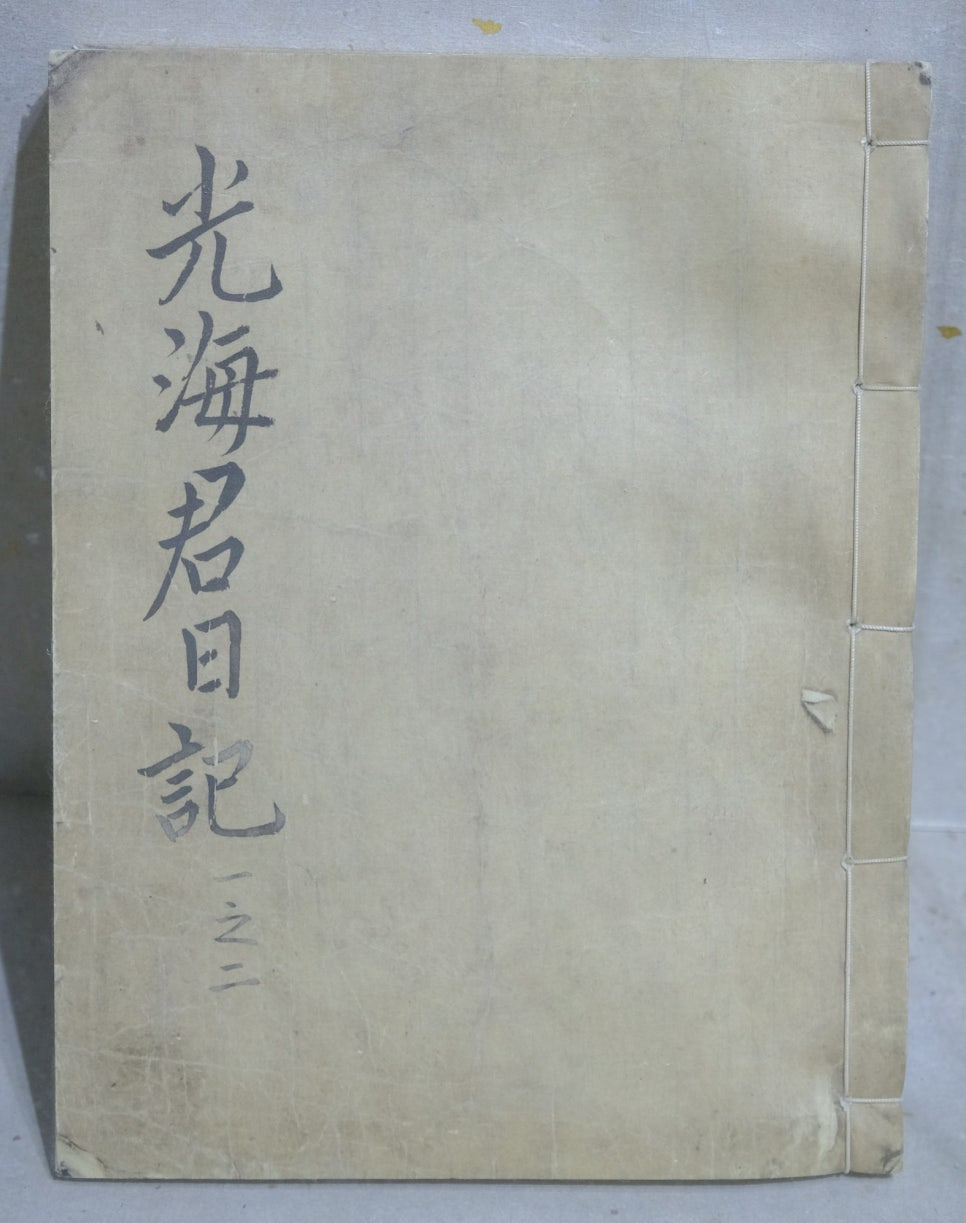 光海君日記
一之二